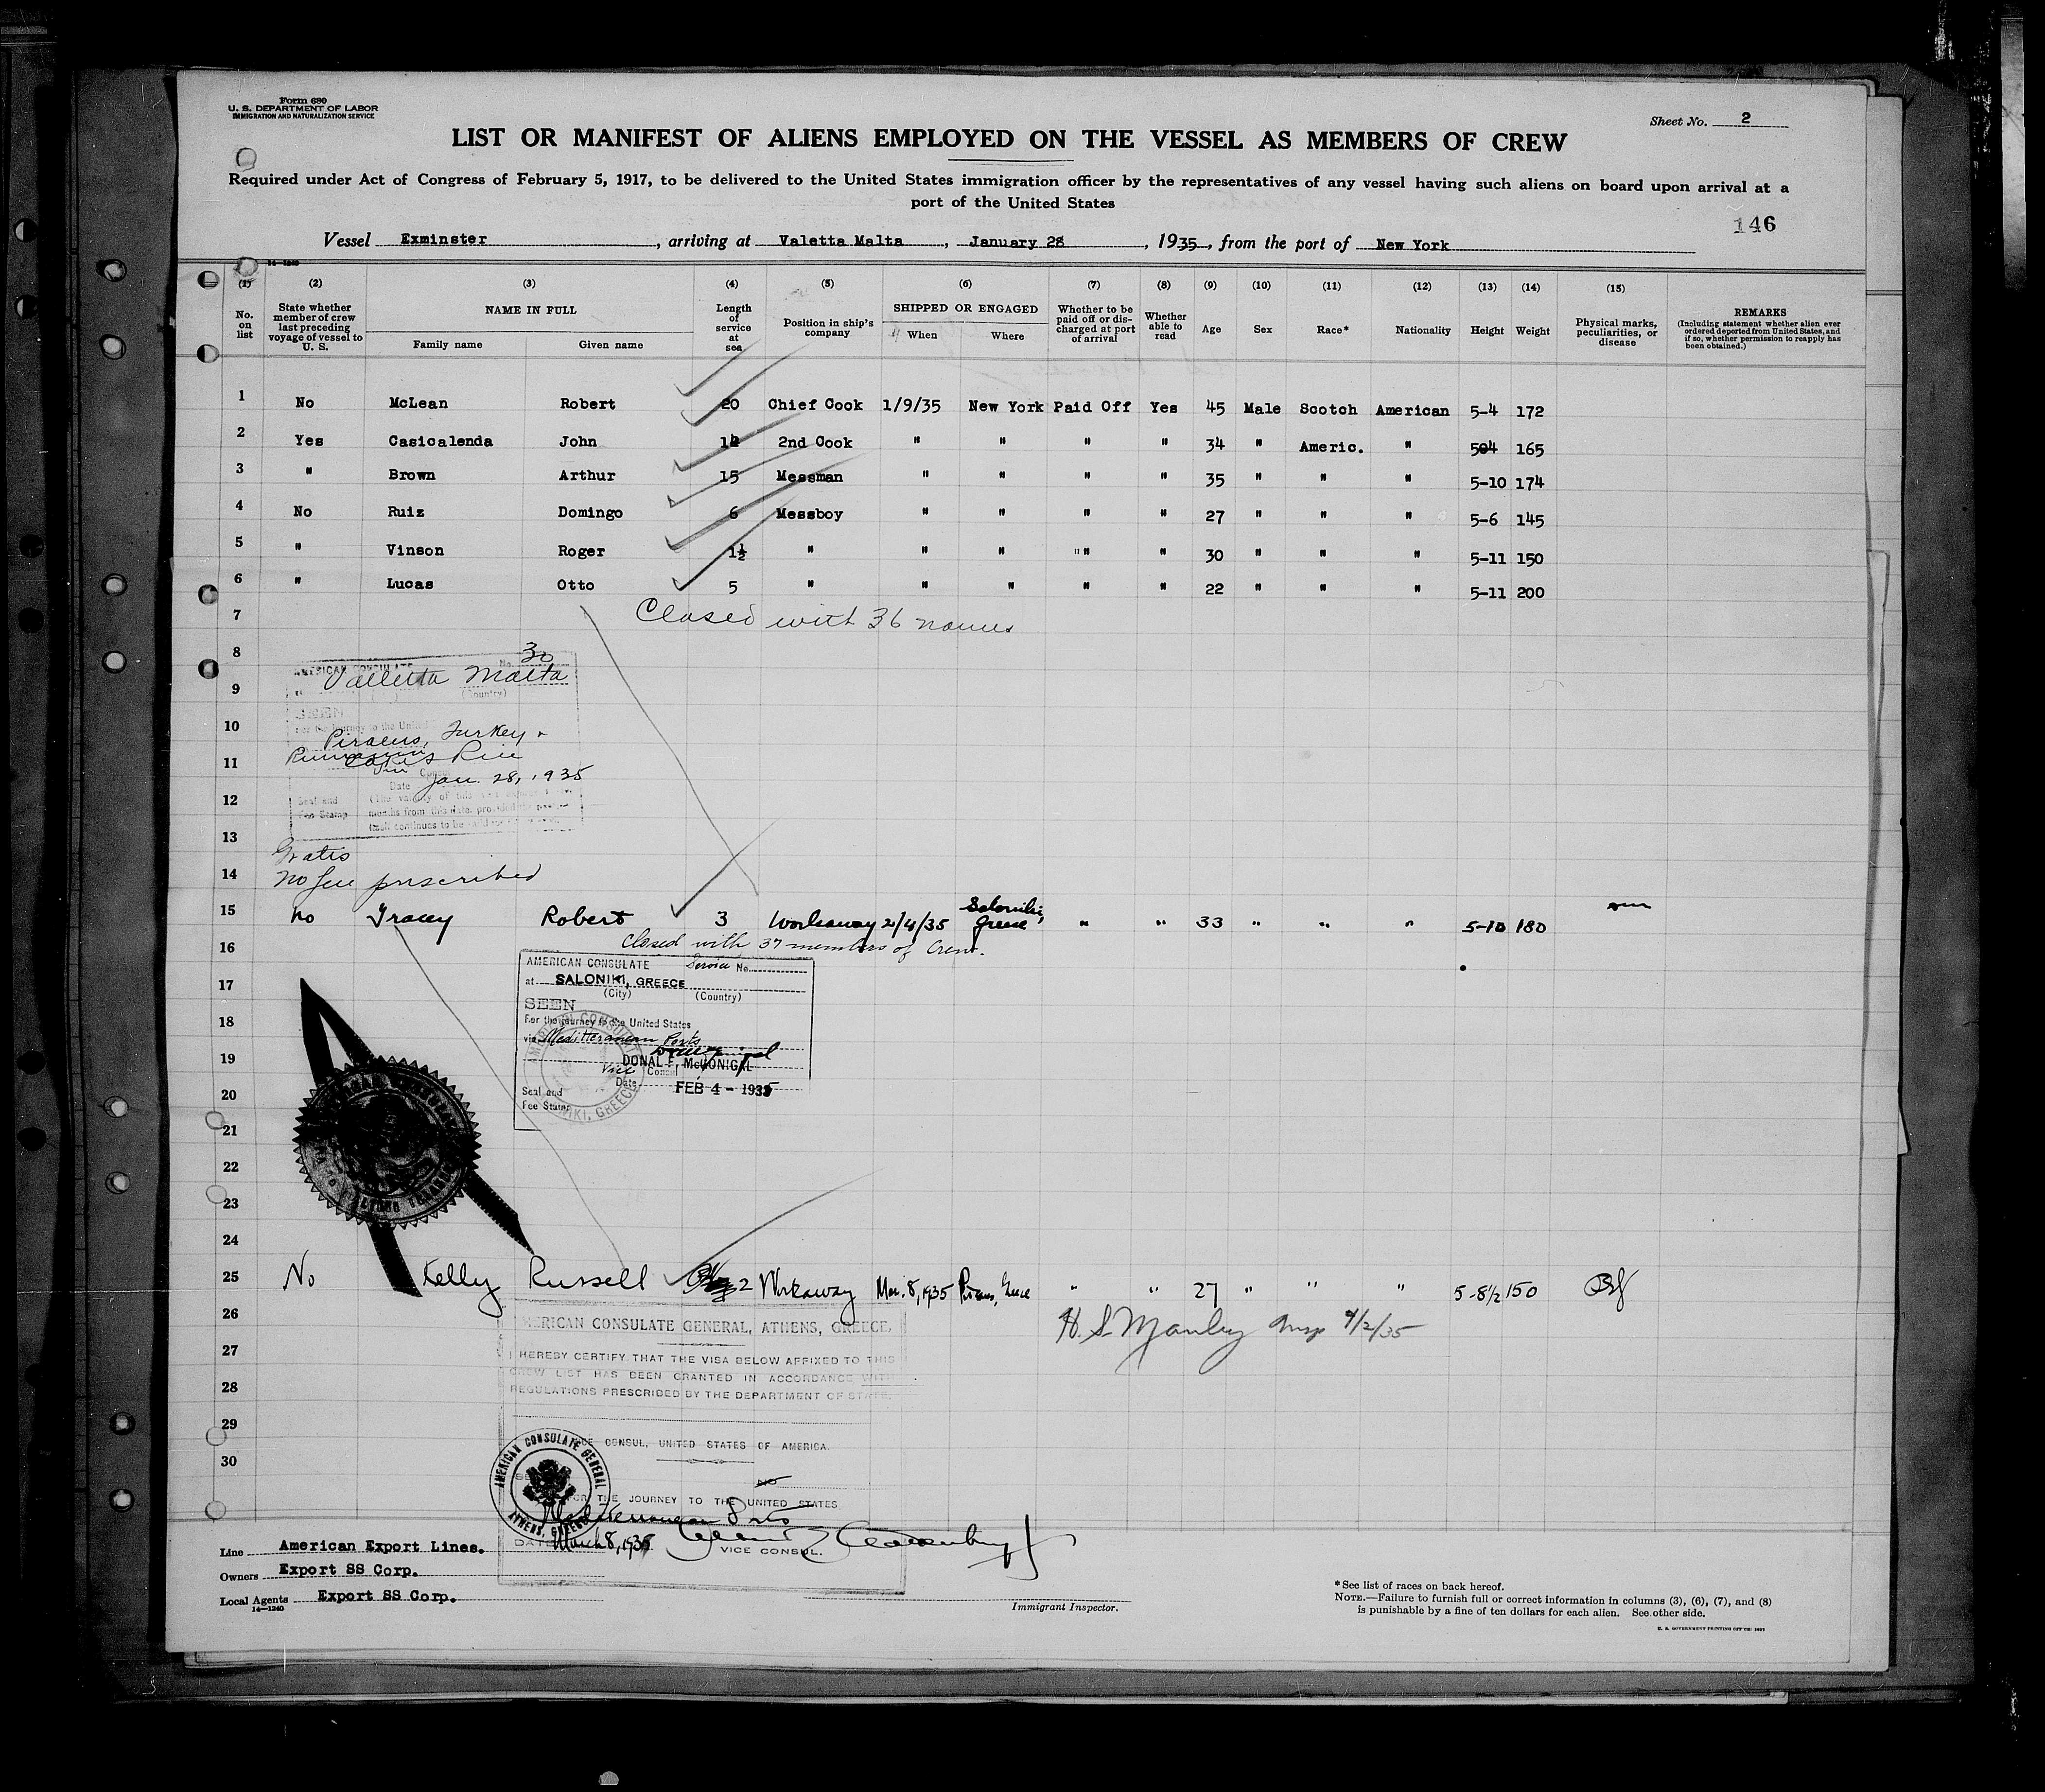 Form 680
U. S. DEPARTMENT OF LABOR
IMMIGRATION AND NATURALIZATION SERVICE
Sheet No. 2
LIST OR MANIFEST OF ALIENS EMPLOYED ON THE VESSEL AS MEMBERS OF CREW
Required under Act of Congress of February 5, 1917, to be delivered to the United States immigration officer by the representatives of any vessel having such aliens on board upon arrival at a
port of the United States
146
Vessel Exminster, arriving at Valetta Malta, January 28, 1935, from the port of New York
14-1240
(1) (2) (3) (4) (5) (6) (7) (8) (9) (10) (11) (12) (13) (14) (15)
No. on list
State whether member of crew last preceding voyage of vessel to U. S.
NAME IN FULL
Family name
Given name
Length of service at sea
Position in ship's company
SHIPPED OR ENGAGED
When
Where
Whether to be paid off or discharged at port of arrival
Whether able to read
Age
Sex
Race*
Nationality
Height
Weight
Physical marks, peculiarities, or disease
REMARKS
(Including statement whether alien ever ordered deported from United States, and if so, whether permission to reapply has been obtained.)
1 No McLean Robert 20 Chief Cook 1/9/35 New York Paid Off Yes 45 Male Scotch American 5-4 172
2 Yes Casicalenda John 2nd Cook " " " " 34 " Americ. " 504 165
3 " Brown Arthur 15 Messman " " " " 35 " " " 5-10 174
4 No Ruiz Domingo 6 Messboy " " " " 27 " " " 5-6 145
5 " Vinson Roger 1½ " " " "" " 30 " " " 5-11 150
6 " Lucas Otto 5 " " " " " 22 " " " 5-11 200
7 Closed with 36 names
8
AMERICAN CONSULATE No. 30
9 Valletta Malta
(Country)
SEEN
For the journey to the United
10 Piraeus, Turkey
11
Jan. 28, 1935
Date
12
Seal and
Fee Stamp
(The validity of this
months from this date, provided the
continues to be valid
13
Gratis
14 No fee prescribed
15 no Tracey Robert 3 Workaway 2/4/35 Saloniki, Greece " " 33 " " " 5-10 180
16 Closed with 37 members of Crew.
AMERICAN CONSULATE Service No.
17 at SALONIKI, GREECE
(City) (Country)
SEEN
18 For the journey to the United States
via Mediterranean Ports
19 DONAL F. McGONIGAL
Vice Consul
Date FEB 4 - 1935
20 Seal and
Fee Stamp
21
22
23
24
25 No Kelly Russell 2 Workaway Mar. 8, 1935 Piraeus, Greece " " 27 " " " 5-8½ 150
26 H. S. Manley Insp 4/2/35
AMERICAN CONSULATE GENERAL, ATHENS, GREECE.
27 I HEREBY CERTIFY THAT THE VISA BELOW AFFIXED TO THIS
CREW LIST HAS BEEN GRANTED IN ACCORDANCE WITH
28 REGULATIONS PRESCRIBED BY THE DEPARTMENT OF STATE.
29
CONSUL, UNITED STATES OF AMERICA.
30
AMERICAN CONSULATE GENERAL
ATHENS, GREECE
NO
FOR THE JOURNEY TO THE UNITED STATES
Mediterranean Ports
DATE March 8, 1935
VICE CONSUL.
Line American Export Lines.
Owners Export SS Corp.
Local Agents Export SS Corp.
14-1240
Immigrant Inspector.
*See list of races on back hereof.
NOTE.—Failure to furnish full or correct information in columns (3), (6), (7), and (8)
is punishable by a fine of ten dollars for each alien. See other side.